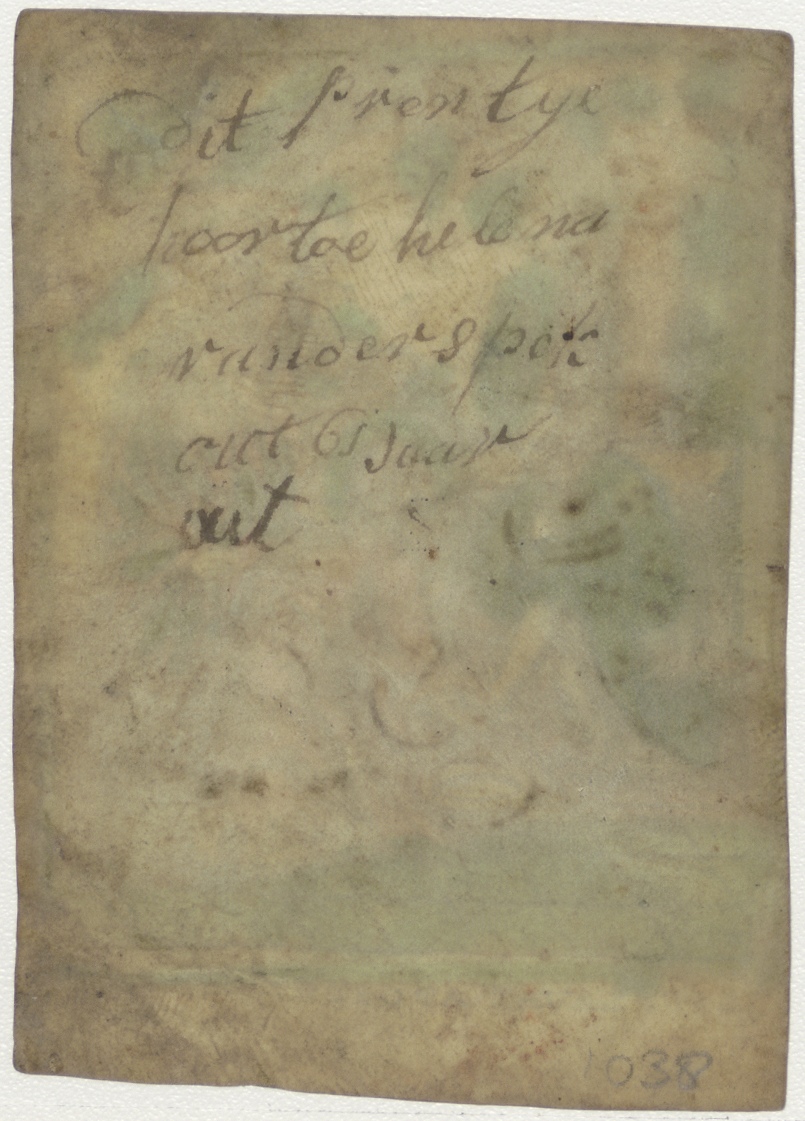 dit prentye
hoortoe helena
vanderspek
out 61 Jaar
out
038